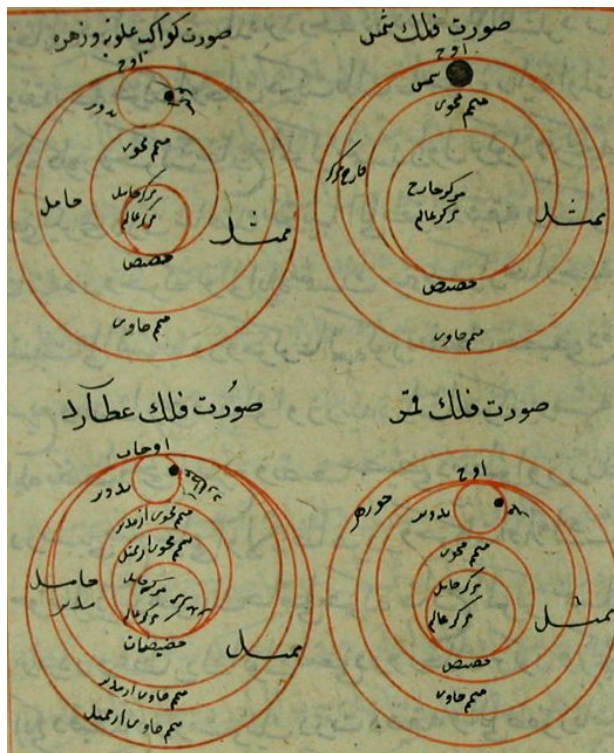 صورت فلك شمس
اوج
شمس
متمم محوی
خارج مركز
مركز خارج
مركز عالم
ممثل
حضیض
متمم حاوی
صورت كواكب علویه و زهره
اوج
تدویر
متمم محوی
حامل
مركز حامل
مركز عالم
ممثل
حضیض
متمم حاوی
صورت فلك قمر
اوج
جوزهر
تدویر
قمر
متمم محوی
مركز حامل
مركز عالم
ممثل
حضیض
متمم حاوی
صورت فلك عطارد
اوجات
تدویر
متمم محوی از مدیر
متمم محوی از ممثل
حامل
مدیر
مركز حامل
مركز عالم
حضیضات
ممثل
متمم حاوی از مدیر
متمم حاوی از ممثل